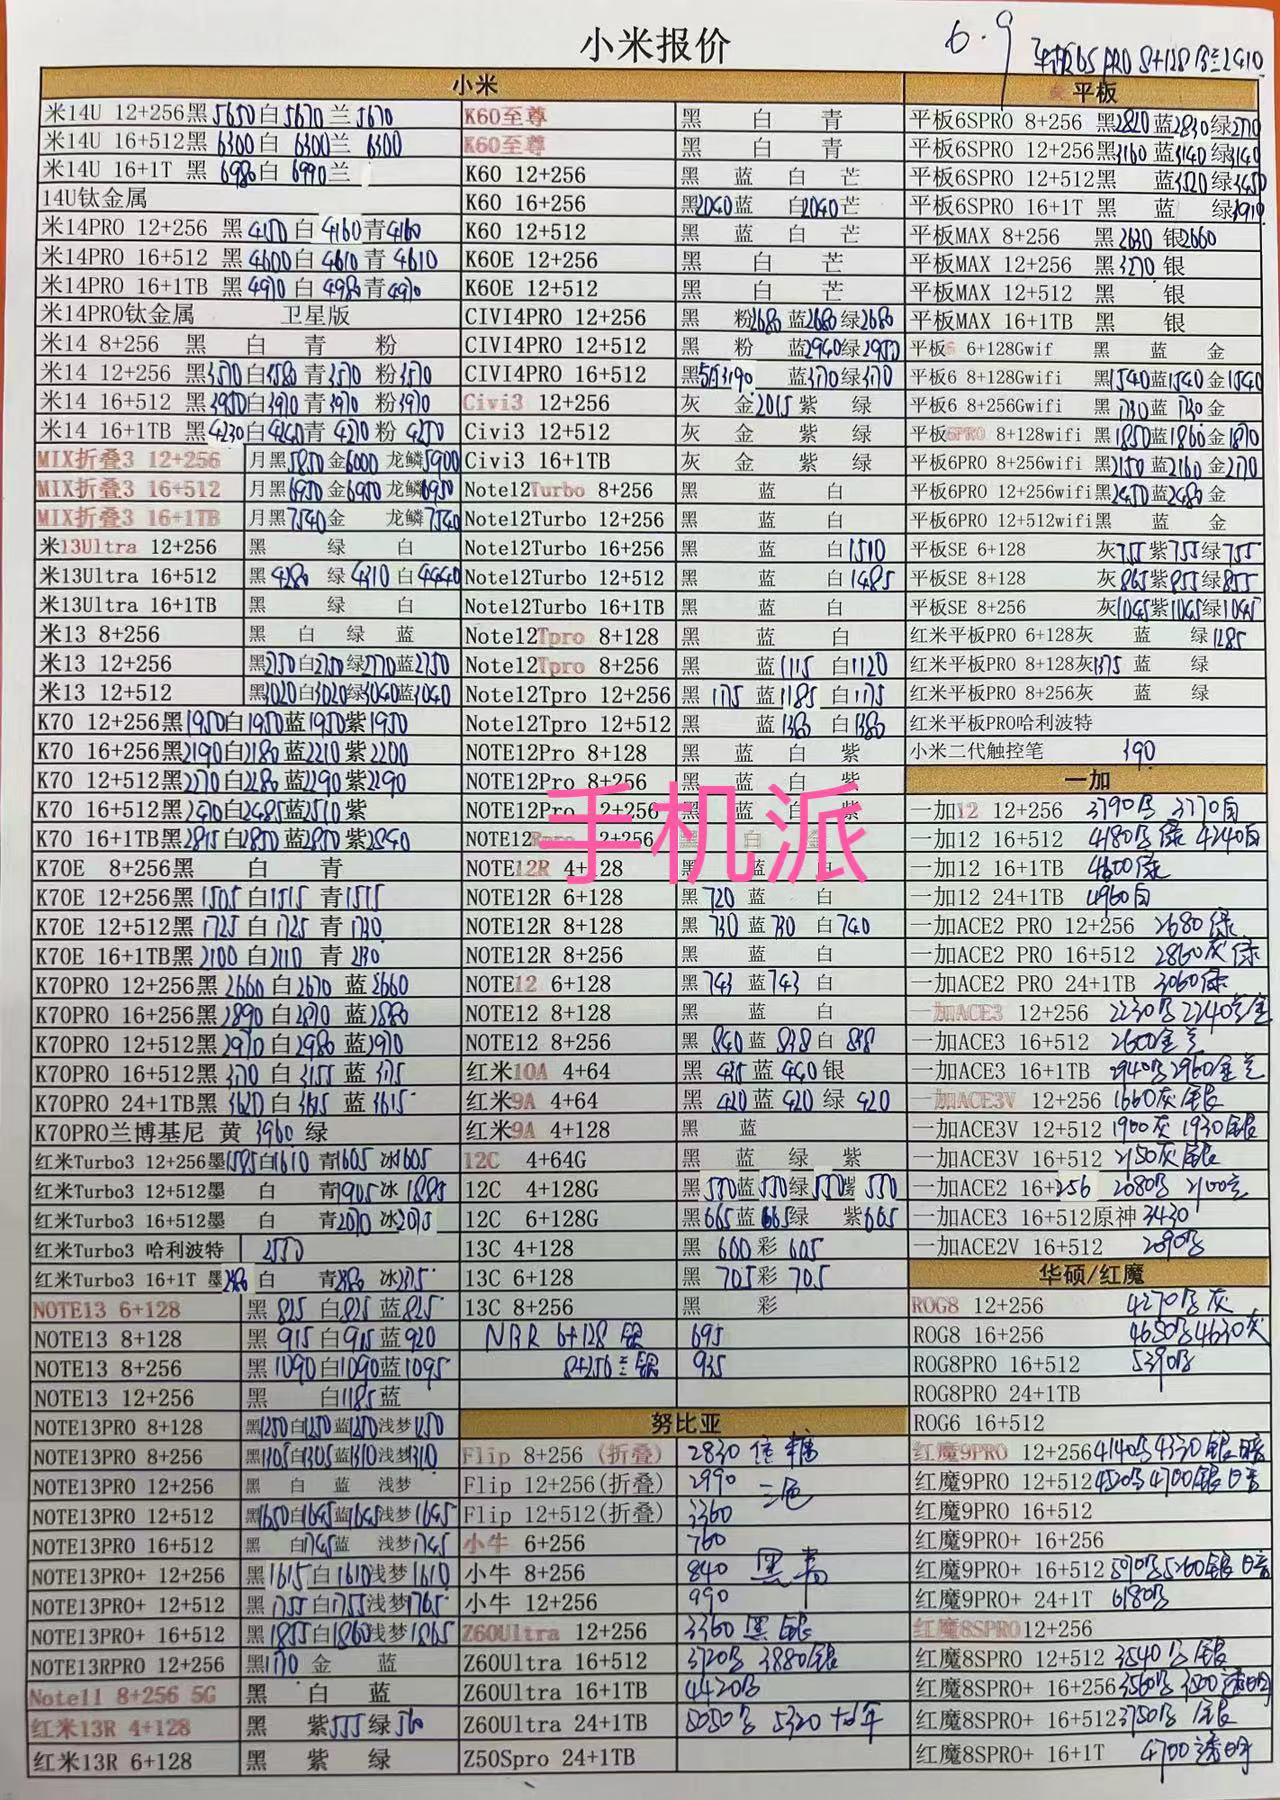 小米报价
6.9
小米
米14U 12+256黑5650白5670兰5670
米14U 16+512黑6300白6300兰6300
米14U 16+1T 黑6980白6990兰
14U钛金属
米14PRO 12+256 黑4150白4160青4160
米14PRO 16+512 黑4600白4610青4610
米14PRO 16+1TB 黑4970白4980青4970
米14PRO钛金属 卫星版
米14 8+256 黑 白 青 粉
米14 12+256 黑3570白3580青3570粉3570
米14 16+512 黑3950白3970青3970粉3970
米14 16+1TB 黑4230白4240青4270粉4250
MIX折叠3 12+256 月黑5850金6000龙鳞5900
MIX折叠3 16+512 月黑6950金6950龙鳞6950
MIX折叠3 16+1TB 月黑7540金 龙鳞7540
米13Ultra 12+256 黑 绿 白
米13Ultra 16+512 黑4280绿4310白4440
米13Ultra 16+1TB 黑 绿 白
米13 8+256 黑 白 绿 蓝
米13 12+256 黑2750白2750绿2770蓝2750
米13 12+512 黑3020白3020绿3040蓝3040
K70 12+256黑1950白1950蓝1950紫1950
K70 16+256黑2190白2180蓝2210紫2200
K70 12+512黑2270白2280蓝2290紫2290
K70 16+512黑2470白2485蓝2510紫
K70 16+1TB黑2815白2800蓝2800紫2840
K70E 8+256黑 白 青
K70E 12+256黑1505白1515青1515
K70E 12+512黑1725白1725青1730
K70E 16+1TB黑2100白2110青2130
K70PRO 12+256黑2660白2670蓝2660
K70PRO 16+256黑2890白2870蓝2880
K70PRO 12+512黑2970白2980蓝2970
K70PRO 16+512黑3170白3155蓝3175
K70PRO 24+1TB黑3620白3615蓝3615
K70PRO兰博基尼 黄3960绿
红米Turbo3 12+256墨1595白1610青1605冰1605
红米Turbo3 12+512墨 白 青1905冰1885
红米Turbo3 16+512墨 白 青2070冰2075
红米Turbo3 哈利波特 2550
红米Turbo3 16+1T 墨2280白 青2280冰2275
NOTE13 6+128 黑825白825蓝825
NOTE13 8+128 黑915白915蓝920
NOTE13 8+256 黑1090白1090蓝1095
NOTE13 12+256 黑 白1185蓝
NOTE13PRO 8+128 黑1250白1250蓝1270浅梦1250
NOTE13PRO 8+256 黑1305白1305蓝1310浅梦1310
NOTE13PRO 12+256 黑 白 蓝 浅梦
NOTE13PRO 12+512 黑1650白1645蓝1645浅梦1645
NOTE13PRO 16+512 黑 白1745蓝 浅梦1745
NOTE13PRO+ 12+256 黑1615白1610浅梦1610
NOTE13PRO+ 12+512 黑1755白1755浅梦1765
NOTE13PRO+ 16+512 黑1855白1860浅梦1865
NOTE13RPRO 12+256 黑1170金 蓝
Note11 8+256 5G 黑 白 蓝
红米13R 4+128 黑 紫555绿560
红米13R 6+128 黑 紫 绿
K60至尊 黑 白 青
K60至尊 黑 白 青
K60 12+256 黑 蓝 白 芒
K60 16+256 黑2040蓝 白2040芒
K60 12+512 黑 蓝 白 芒
K60E 12+256 黑 白 芒
K60E 12+512 黑 白 芒
CIVI4PRO 12+256 黑 粉2680蓝2680绿2680
CIVI4PRO 12+512 黑 粉 蓝2940绿2950
CIVI4PRO 16+512 蓝3170绿3170
Civi3 12+256 灰 金2015紫 绿
Civi3 12+512 灰 金 紫 绿
Civi3 16+1TB 灰 金 紫 绿
Note12Turbo 8+256 黑 蓝 白
Note12Turbo 12+256 黑 蓝 白
Note12Turbo 16+256 黑 蓝 白1510
Note12Turbo 12+512 黑 蓝 白1485
Note12Turbo 16+1TB 黑 蓝 白
Note12Tpro 8+128 黑 蓝 白
Note12Tpro 8+256 黑 蓝1115白1120
Note12Tpro 12+256 黑1175蓝1185白1175
Note12Tpro 12+512 黑 蓝1380白1380
NOTE12Pro 8+128 黑 蓝 白 紫
NOTE12Pro 8+256 黑 蓝 白 紫
NOTE12Pro 12+256 黑 蓝 白 紫
手机派
NOTE12Rpro 12+256 黑 白
NOTE12R 4+128 黑 蓝 白
NOTE12R 6+128 黑720蓝 白
NOTE12R 8+128 黑730蓝730白740
NOTE12R 8+256 黑 蓝 白
NOTE12 6+128 黑743蓝743白
NOTE12 8+128 黑 蓝 白
NOTE12 8+256 黑840蓝838白838
红米10A 4+64 黑435蓝440银
红米9A 4+64 黑420蓝420绿420
红米9A 4+128 黑 蓝
12C 4+64G 黑 蓝 绿 紫
12C 4+128G 黑550蓝550绿550紫550
12C 6+128G 黑665蓝665绿 紫665
13C 4+128 黑600彩605
13C 6+128 黑705彩705
13C 8+256 黑 彩
6+128 银 695
8+256兰银 935
努比亚
Flip 8+256 (折叠) 2830焦糖
Flip 12+256(折叠) 2990 三色
Flip 12+512(折叠) 3360
小牛 6+256 760
小牛 8+256 840 黑青
小牛 12+256 990
Z60Ultra 12+256 3360黑银
Z60Ultra 16+512 3720 3880银
Z60Ultra 16+1TB 4420
Z60Ultra 24+1TB 5050 5320
Z50Spro 24+1TB
平板6S PRO 8+128 2410
平板
平板6SPRO 8+256 黑2820蓝2830绿2770
平板6SPRO 12+256黑3160蓝3140绿3140
平板6SPRO 12+512黑 蓝3520绿3450
平板6SPRO 16+1T 黑 蓝 绿3910
平板MAX 8+256 黑2630银2660
平板MAX 12+256 黑3270银
平板MAX 12+512 黑 银
平板MAX 16+1TB 黑 银
平板6 6+128Gwif 黑 蓝 金
平板6 8+128Gwifi 黑1540蓝1540金1540
平板6 8+256Gwifi 黑1730蓝1730金
平板6PRO 8+128wifi 黑1850蓝1860金1870
平板6PRO 8+256wifi 黑2150蓝2160金2170
平板6PRO 12+256wifi黑2450蓝2480金
平板6PRO 12+512wifi黑 蓝 金
平板SE 6+128 灰755紫755绿755
平板SE 8+128 灰865紫855绿855
平板SE 8+256 灰1045紫1045绿1045
红米平板PRO 6+128灰 蓝 绿1285
红米平板PRO 8+128灰1375蓝 绿
红米平板PRO 8+256灰 蓝 绿
红米平板PRO哈利波特
小米二代触控笔 390
一加
一加12 12+256 3790 3770白
一加12 16+512 4180 绿 4240白
一加12 16+1TB 4600绿
一加12 24+1TB 4960白
一加ACE2 PRO 12+256 2680绿
一加ACE2 PRO 16+512 2860灰绿
一加ACE2 PRO 24+1TB 3060绿
一加ACE3 12+256 2230 2240
一加ACE3 16+512 2600
一加ACE3 16+1TB 2940 2960
一加ACE3V 12+256 1660灰银
一加ACE3V 12+512 1900灰 1930银
一加ACE3V 16+512 2150灰银
一加ACE2 16+256 2080 2100
一加ACE3 16+512原神3430
一加ACE2V 16+512 2090
华硕/红魔
ROG8 12+256 4270 灰
ROG8 16+256 4650 4630灰
ROG8PRO 16+512 5390
ROG8PRO 24+1TB
ROG6 16+512
红魔9PRO 12+256 4140 4330银暗
红魔9PRO 12+512 4520 4700银暗
红魔9PRO 16+512
红魔9PRO+ 16+256
红魔9PRO+ 16+512 5090 5260银暗
红魔9PRO+ 24+1T 6180
红魔8SPRO 12+256
红魔8SPRO 12+512 3540 银
红魔8SPRO+ 16+256 3560 3500透明
红魔8SPRO+ 16+512 3750 银
红魔8SPRO+ 16+1T 4700透明